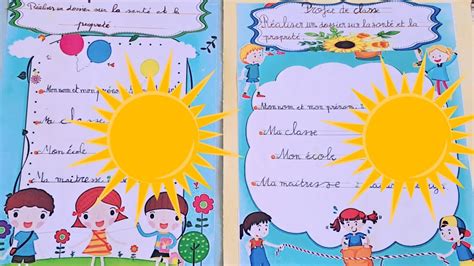 Réaliser un dossier sur la santé et la
propreté
Mon nom et mon prénom
Ma classe
Mon école
Ma maîtresse
Projet de classe
Réaliser un dossier sur la santé et la
propreté
Mon nom et mon prénom
Ma classe
Mon école
Ma maîtresse